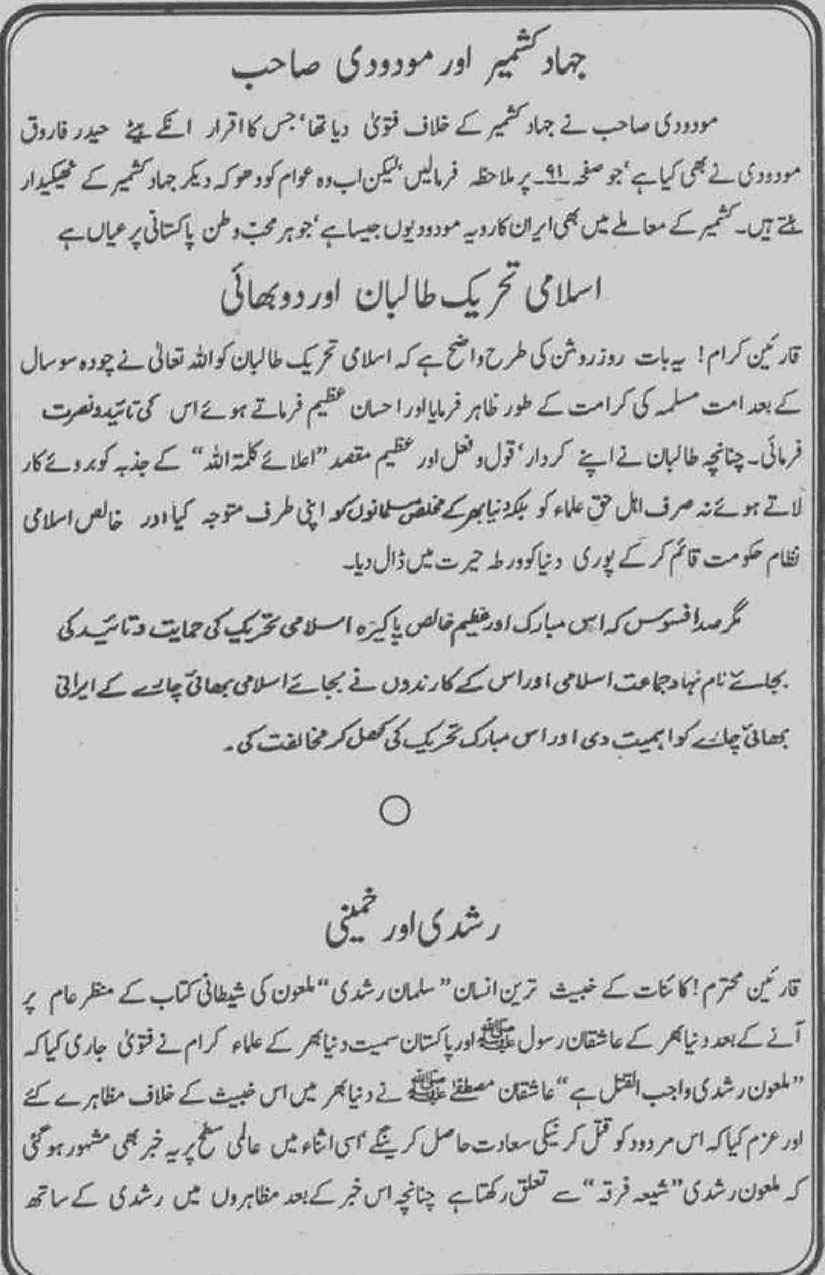 جہاد کشمیر اور مودودی صاحب
مودودی صاحب نے جہاد کشمیر کے خلاف فتویٰ دیا تھا، جس کا اقرار انکے بیٹے حیدر فاروق
مودودی نے بھی کیا ہے، جو صفحہ ۹۱ پر ملاحظہ فرمالیں، لیکن اب وہ عوام کو دھوکہ دیکر جہاد کشمیر کے ٹھیکیدار
بنتے ہیں۔ کشمیر کے معاملے میں بھی ایران کا رویہ مودودیوں جیسا ہے، جو ہر محبّ وطن پاکستانی پر عیاں ہے
اسلامی تحریک طالبان اور دو بھائی
قارئین کرام! یہ بات روز روشن کی طرح واضح ہے کہ اسلامی تحریک طالبان کو اللہ تعالیٰ نے چودہ سو سال
کے بعد امت مسلمہ کی کرامت کے طور ظاہر فرمایا اور احسان عظیم فرماتے ہوئے اس کی تائید و نصرت
فرمائی۔ چنانچہ طالبان نے اپنے کردار، قول و فعل اور عظیم مقصد ”اعلائے کلمۃ اللہ“ کے جذبہ کو بروئے کار
لاتے ہوئے نہ صرف اہل حق علماء کو بلکہ دنیا بھر کے مخلص مسلمانوں کو اپنی طرف متوجہ کیا اور خالص اسلامی
نظام حکومت قائم کر کے پوری دنیا کو ورطہ حیرت میں ڈال دیا۔
مگر صد افسوس کہ اس مبارک اور عظیم خالص پاکیزہ اسلامی تحریک کی حمایت و تائید کی
بجائے نام نہاد جماعت اسلامی اور اس کے کارندوں نے بجائے اسلامی بھائی چارے کے ایرانی
بھائی چارے کو اہمیت دی اور اس مبارک تحریک کی کھل کر مخالفت کی۔
رشدی اور خمینی
قارئین محترم! کائنات کے خبیث ترین انسان ”سلمان رشدی“ ملعون کی شیطانی کتاب کے منظر عام پر
آنے کے بعد دنیا بھر کے عاشقان رسول ﷺ اور پاکستان سمیت دنیا بھر کے علماء کرام نے فتویٰ جاری کیا کہ
”ملعون رشدی واجب القتل ہے“ عاشقان مصطفےٰ ﷺ نے دنیا بھر میں اس خبیث کے خلاف مظاہرے کئے
اور عزم کیا کہ اس مردود کو قتل کرنیکی سعادت حاصل کرینگے، اسی اثناء میں عالمی سطح پر یہ خبر بھی مشہور ہو گئی
کہ ملعون رشدی ”شیعہ فرقہ“ سے تعلق رکھتا ہے چنانچہ اس خبر کے بعد مظاہروں میں رشدی کے ساتھ